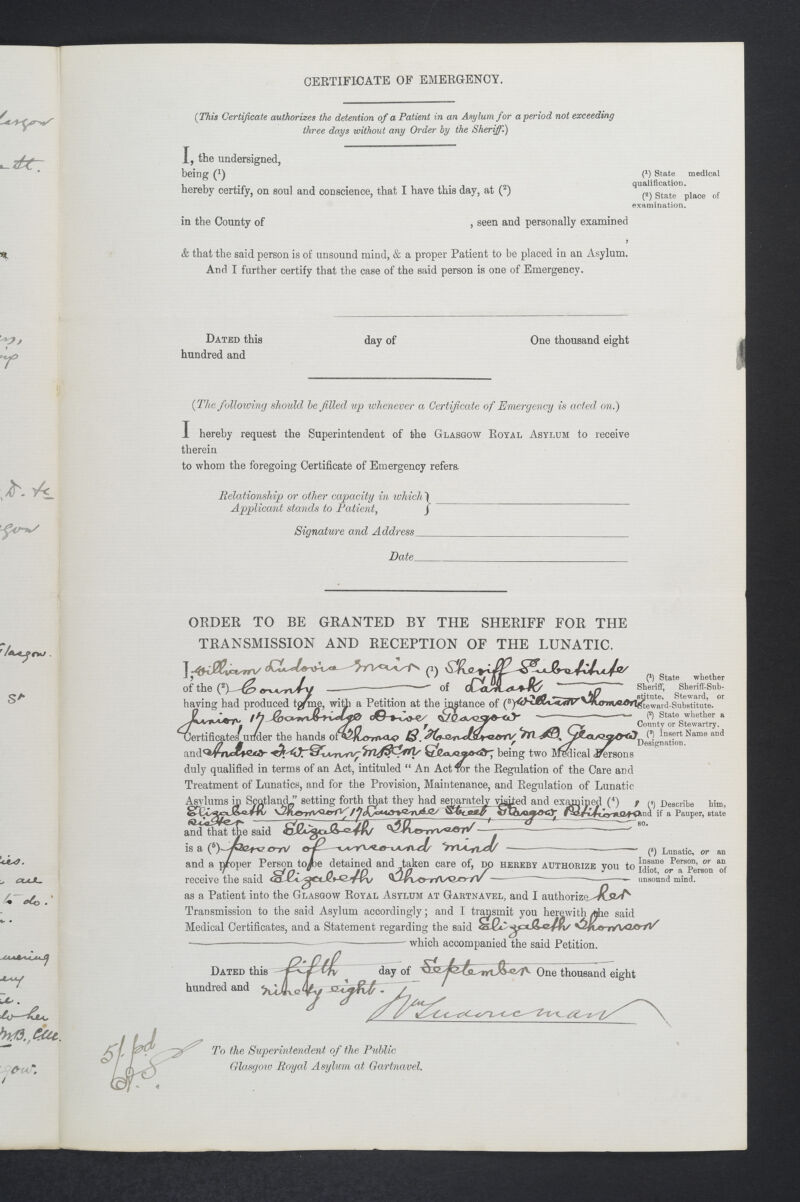 CERTIFICATE OF EMERGENCY.
(This Certificate authorizes the detention of a Patient in an Asylum for a period not exceeding
three days without any Order by the Sheriff.)
I, the undersigned,
being (¹)
hereby certify, on soul and conscience, that I have this day, at (²)
(¹) State medical
qualification.
(²) State place of
examination.
in the County of , seen and personally examined
,
& that the said person is of unsound mind, & a proper Patient to be placed in an Asylum.
And I further certify that the case of the said person is one of Emergency.
DATED this day of One thousand eight
hundred and
(The following should be filled up whenever a Certificate of Emergency is acted on.)
I hereby request the Superintendent of the GLASGOW ROYAL ASYLUM to receive
therein
to whom the foregoing Certificate of Emergency refers.
Relationship or other capacity in which }
Applicant stands to Patient, }
Signature and Address
Date
ORDER TO BE GRANTED BY THE SHERIFF FOR THE
TRANSMISSION AND RECEPTION OF THE LUNATIC.
I, William Ludovic Mair (¹) Sheriff Substitute
of the (²) County of Lanark
having had produced to me, with a Petition at the instance of (³) William Thomson
Junior, 17 Cambridge Drive Glasgow
Certificates under the hands of Thomas B. Henderson, M.D. Glasgow
and Andrew F. W. Funn, M.B.C.M. Glasgow, being two Medical Persons
duly qualified in terms of an Act, intituled "An Act for the Regulation of the Care and
Treatment of Lunatics, and for the Provision, Maintenance, and Regulation of Lunatic
Asylums in Scotland," setting forth that they had separately visited and examined (⁴) ,
Elizabeth Thomson, 17 Lawrence Street, Glasgow, Petitioners
sister
and that the said Elizabeth Thomson
is a (⁵) person of unsound mind
and a proper Person to be detained and taken care of, DO HEREBY AUTHORIZE you to
receive the said Elizabeth Thomson
as a Patient into the GLASGOW ROYAL ASYLUM AT GARTNAVEL, and I authorize her
Transmission to the said Asylum accordingly; and I transmit you herewith the said
Medical Certificates, and a Statement regarding the said Elizabeth Thomson
which accompanied the said Petition.
(¹) State whether
Sheriff, Sheriff-Sub-
stitute, Steward, or
Steward-Substitute.
(²) State whether a
County or Stewartry.
(³) Insert Name and
Designation.
(⁴) Describe him,
and if a Pauper, state
so.
(⁵) Lunatic, or an
Insane Person, or an
Idiot, or a Person of
unsound mind.
DATED this fifth day of September One thousand eight
hundred and ninety eight.
Wm Ludovic Mair
5/. pd
To the Superintendent of the Public
Glasgow Royal Asylum at Gartnavel.
Glasgow
St.
D. &c
Glasgow.
St
are
to do.
her
M.B., C.M.